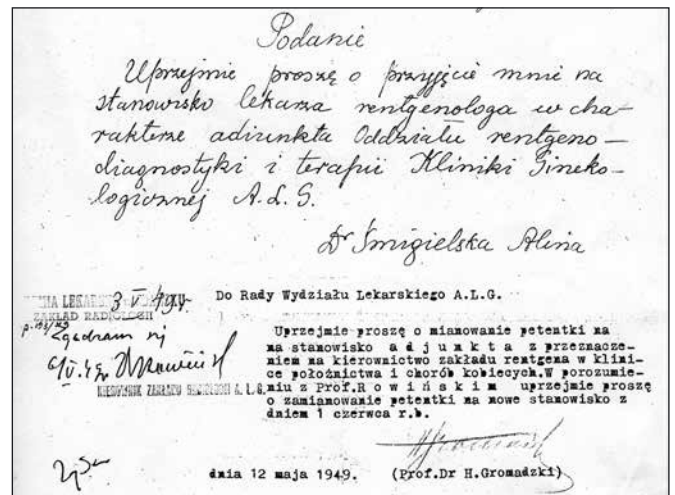 Podanie
Uprzejmie proszę o przyjęcie mnie na
stanowisko lekarza rentgenologa w cha-
rakterze adiunkta Oddziału rentgeno-
diagnostyki i terapii Kliniki Gineko-
logicznej A.L.G.
Dr Śmigielska Alina
3 V 49r.
ZAKŁAD RADIOLOGII
Zgadzam się
KIEROWNIK ZAKŁADU RADIOLOGII A. L. G.
Do Rady Wydziału Lekarskiego A.L.G.
Uprzejmie proszę o mianowanie petentki na
na stanowisko a d j u n k t a z przeznacze-
niem na kierownictwo zakładu rentgena w klini-
ce położnictwa i chorób kobiecych.W porozumie-
niu z Prof.R o w i ń s k i m uprzejmie proszę
o zamianowanie petentki na nowe stanowisko z
dniem 1 czerwca r.b.
dnia 12 maja 1949. (Prof.Dr H.Gromadzki)